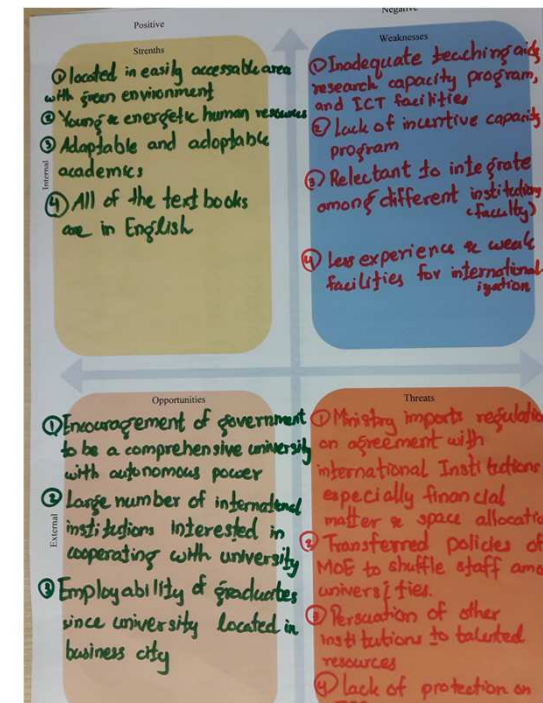 Positive
Negative
Strenths
① located in easily accessable area
with green environment
② Young & energetic human resources
③ Adaptable and adoptable
academics
④ All of the text books
are in English
Internal
Weaknesses
① Inadequate teaching aids
research capacity program,
and ICT facilities
② Lack of incentive capacity
program
③ Relectant to integrate
among different institutions
(faculty)
④ Less experience & weak
facilities for international
ization
Opportunities
① Encouragement of government
to be a comprehensive university
with autonomous power
② Large number of international
institutions interested in
cooperating with university
③ Employability of graduates
since university located in
business city
External
Threats
① Ministry imports regulatio
on agreement with
international Institutions
especially financial
matter & space allocatio
② Transferred policies of
MOE to shuffle staff amo
universities.
③ Persuation of other
institutions to talented
resources
④ lack of protection on